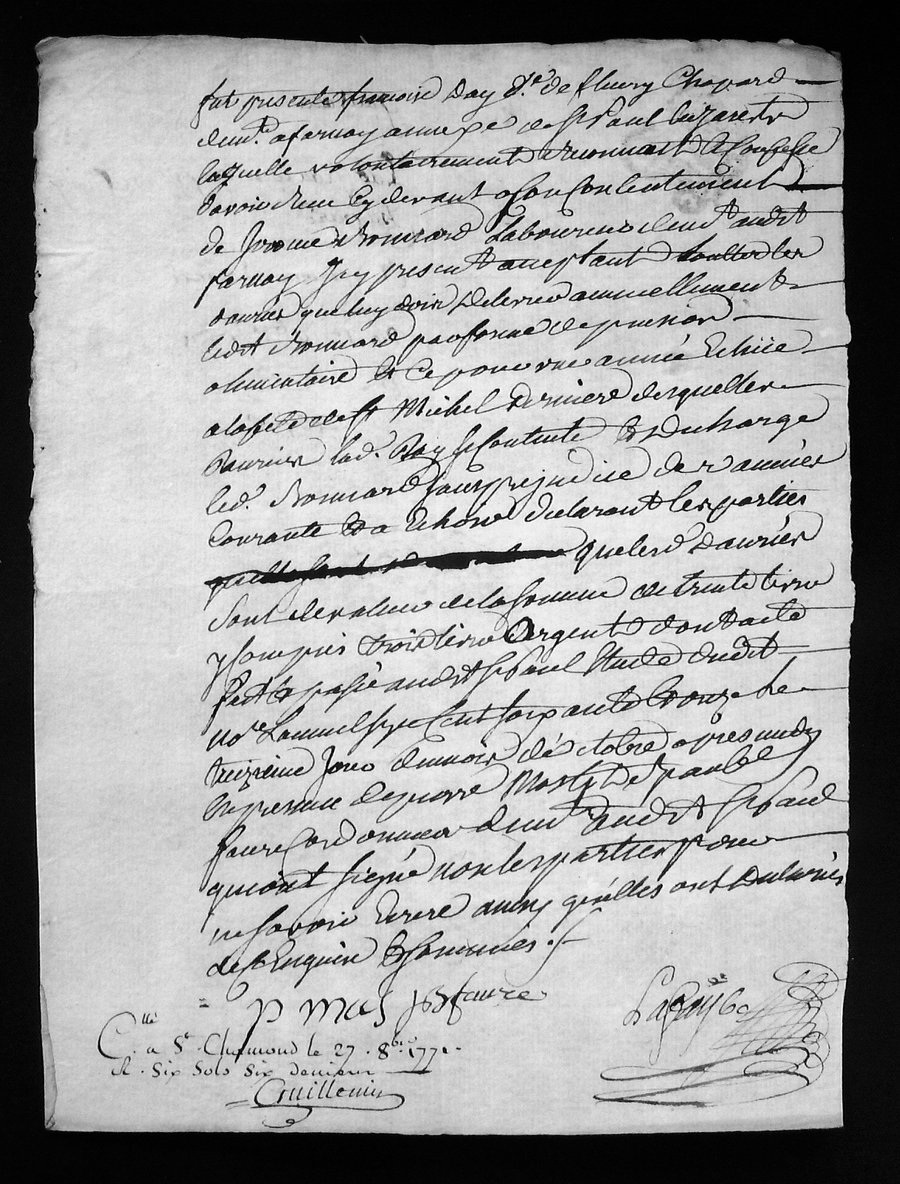 fut presente francoise Day v.ve de fleury Chapard
demt. a farnay annexe de St Paul en Jarests
laquelle volontairement reconnait et confesse
davoir reçu cy devant a son contentement
de Jerome Bonnard Laboureur demt audit
farnay Icy present acceptant toutes les
danrées que luy doit delivrer annuellement
ledit Bonnard par forme de pension
alimentaire et ce pour une année Echüe
a la fete de St Michel derniere desquelles
danrées lad. Day se contente et decharge
led. Bonnard sans prejudice de l'année
courante et a Echoir declarant les parties
que lesd danrées
sont de valeur de la somme de trente livre
y compris trois livre argent dont acte
fait et passé audit St paul Etude dudit
nore Lan mil sept cent soixante et onze le
treizieme Jour du mois d'octobre apres midy
En presence de pierre Mas et de
faure cordonnier demt audit St paul
qui ont signé non les parties pour
ne savoir Ecrire ainsy qu'elles ont declarées
de ce Enquise et sommées ./.
= p mas JB faure
C.lle a St. Chamond le 27. 8bre 1771.
R. Six Sols Six deniers
Guillemin